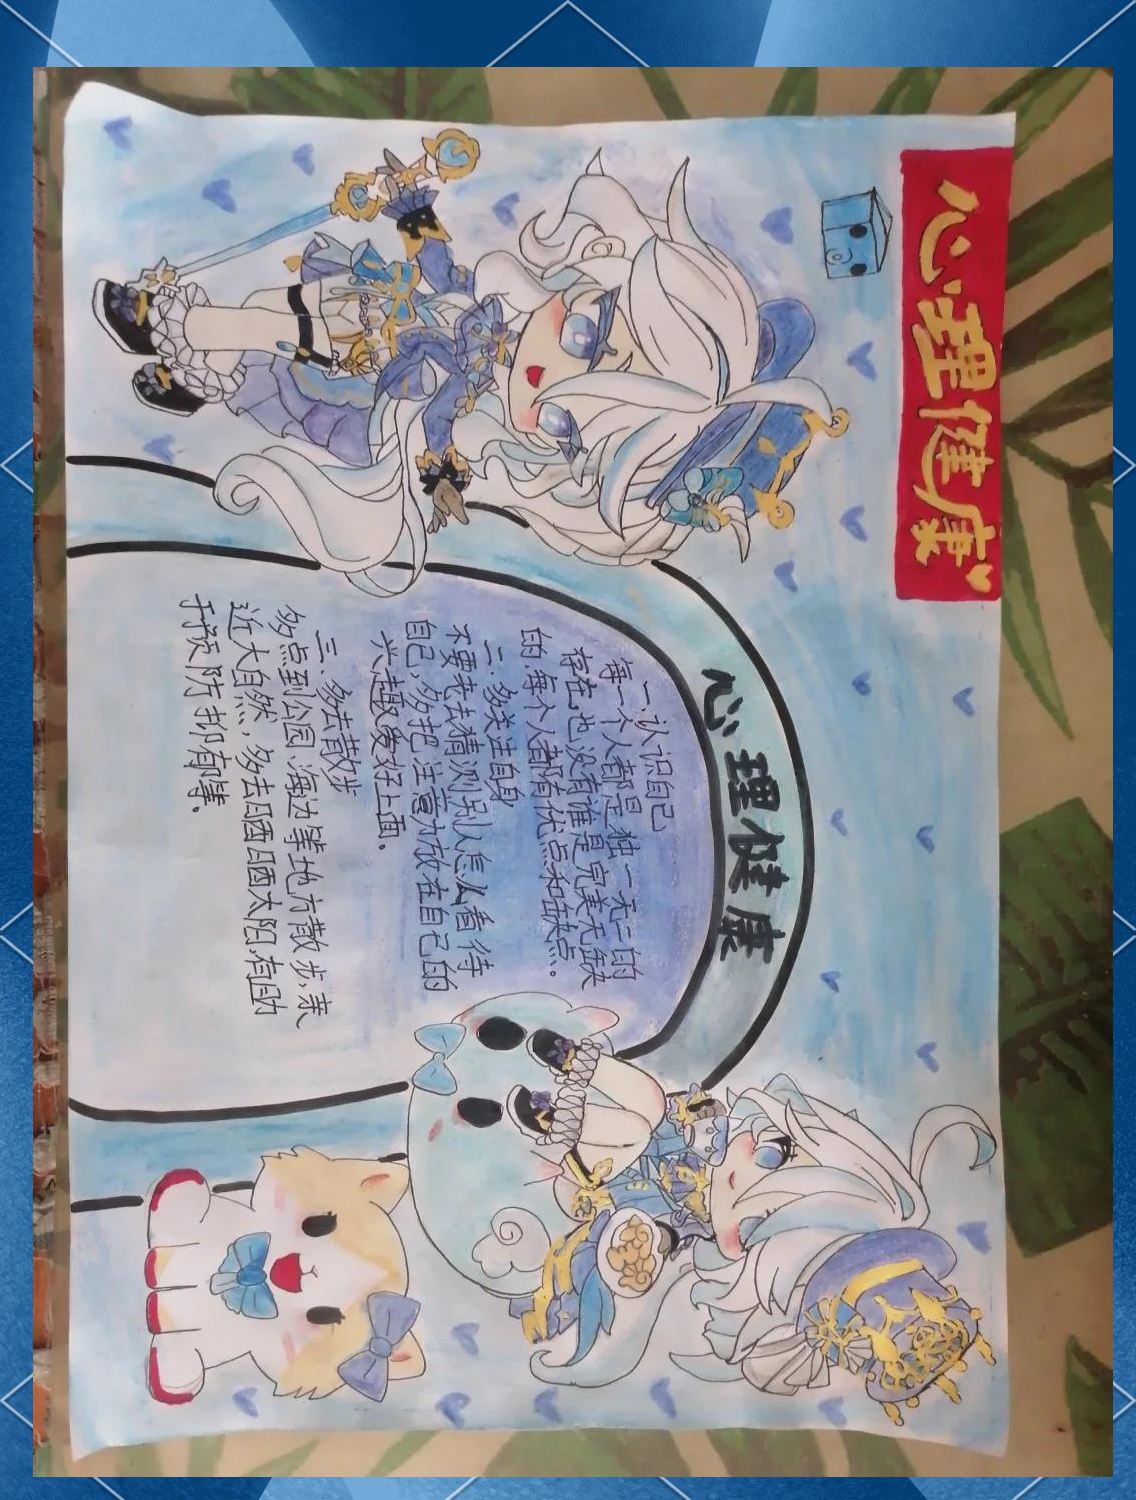 心理健康
心理健康
一.认识自己
每一个人都是独一无二的
存在,也没有谁是完美无缺
的,每个人都有优点和缺点。
二.多关注自身
不要老去猜测别人怎么看待
自己,多把注意力放在自己的
兴趣爱好上面.
三.多去散步
多点到公园.海边等地方散步,亲
近大自然,多去晒晒太阳,有助
于预防抑郁等.